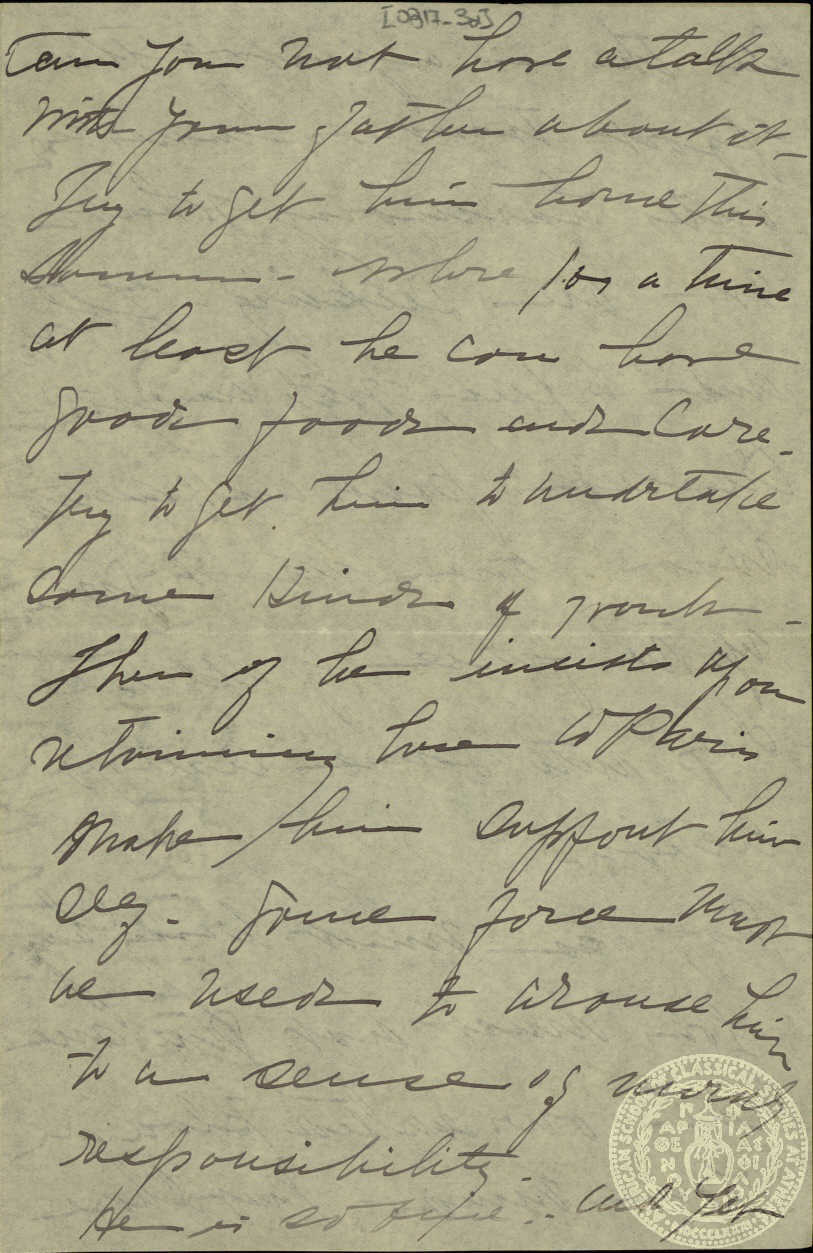 [0317-32]
Can you not have a talk
with your father about it -
Try to get him home this
Summer - where for a time
at least he can have
good food and care -
Try to get him to undertake
some kind of work -
Then if he insists upon
returning here to Paris
make him support him
self - Some force must
be used to arouse him
to a sense of moral
responsibility.
He is so - and yet
AMERICAN SCHOOL OF CLASSICAL STUDIES AT ATHENS
ΠΑΡΘΕΝΟΥ ΦΙΑΣ
MDCCCLXXXI